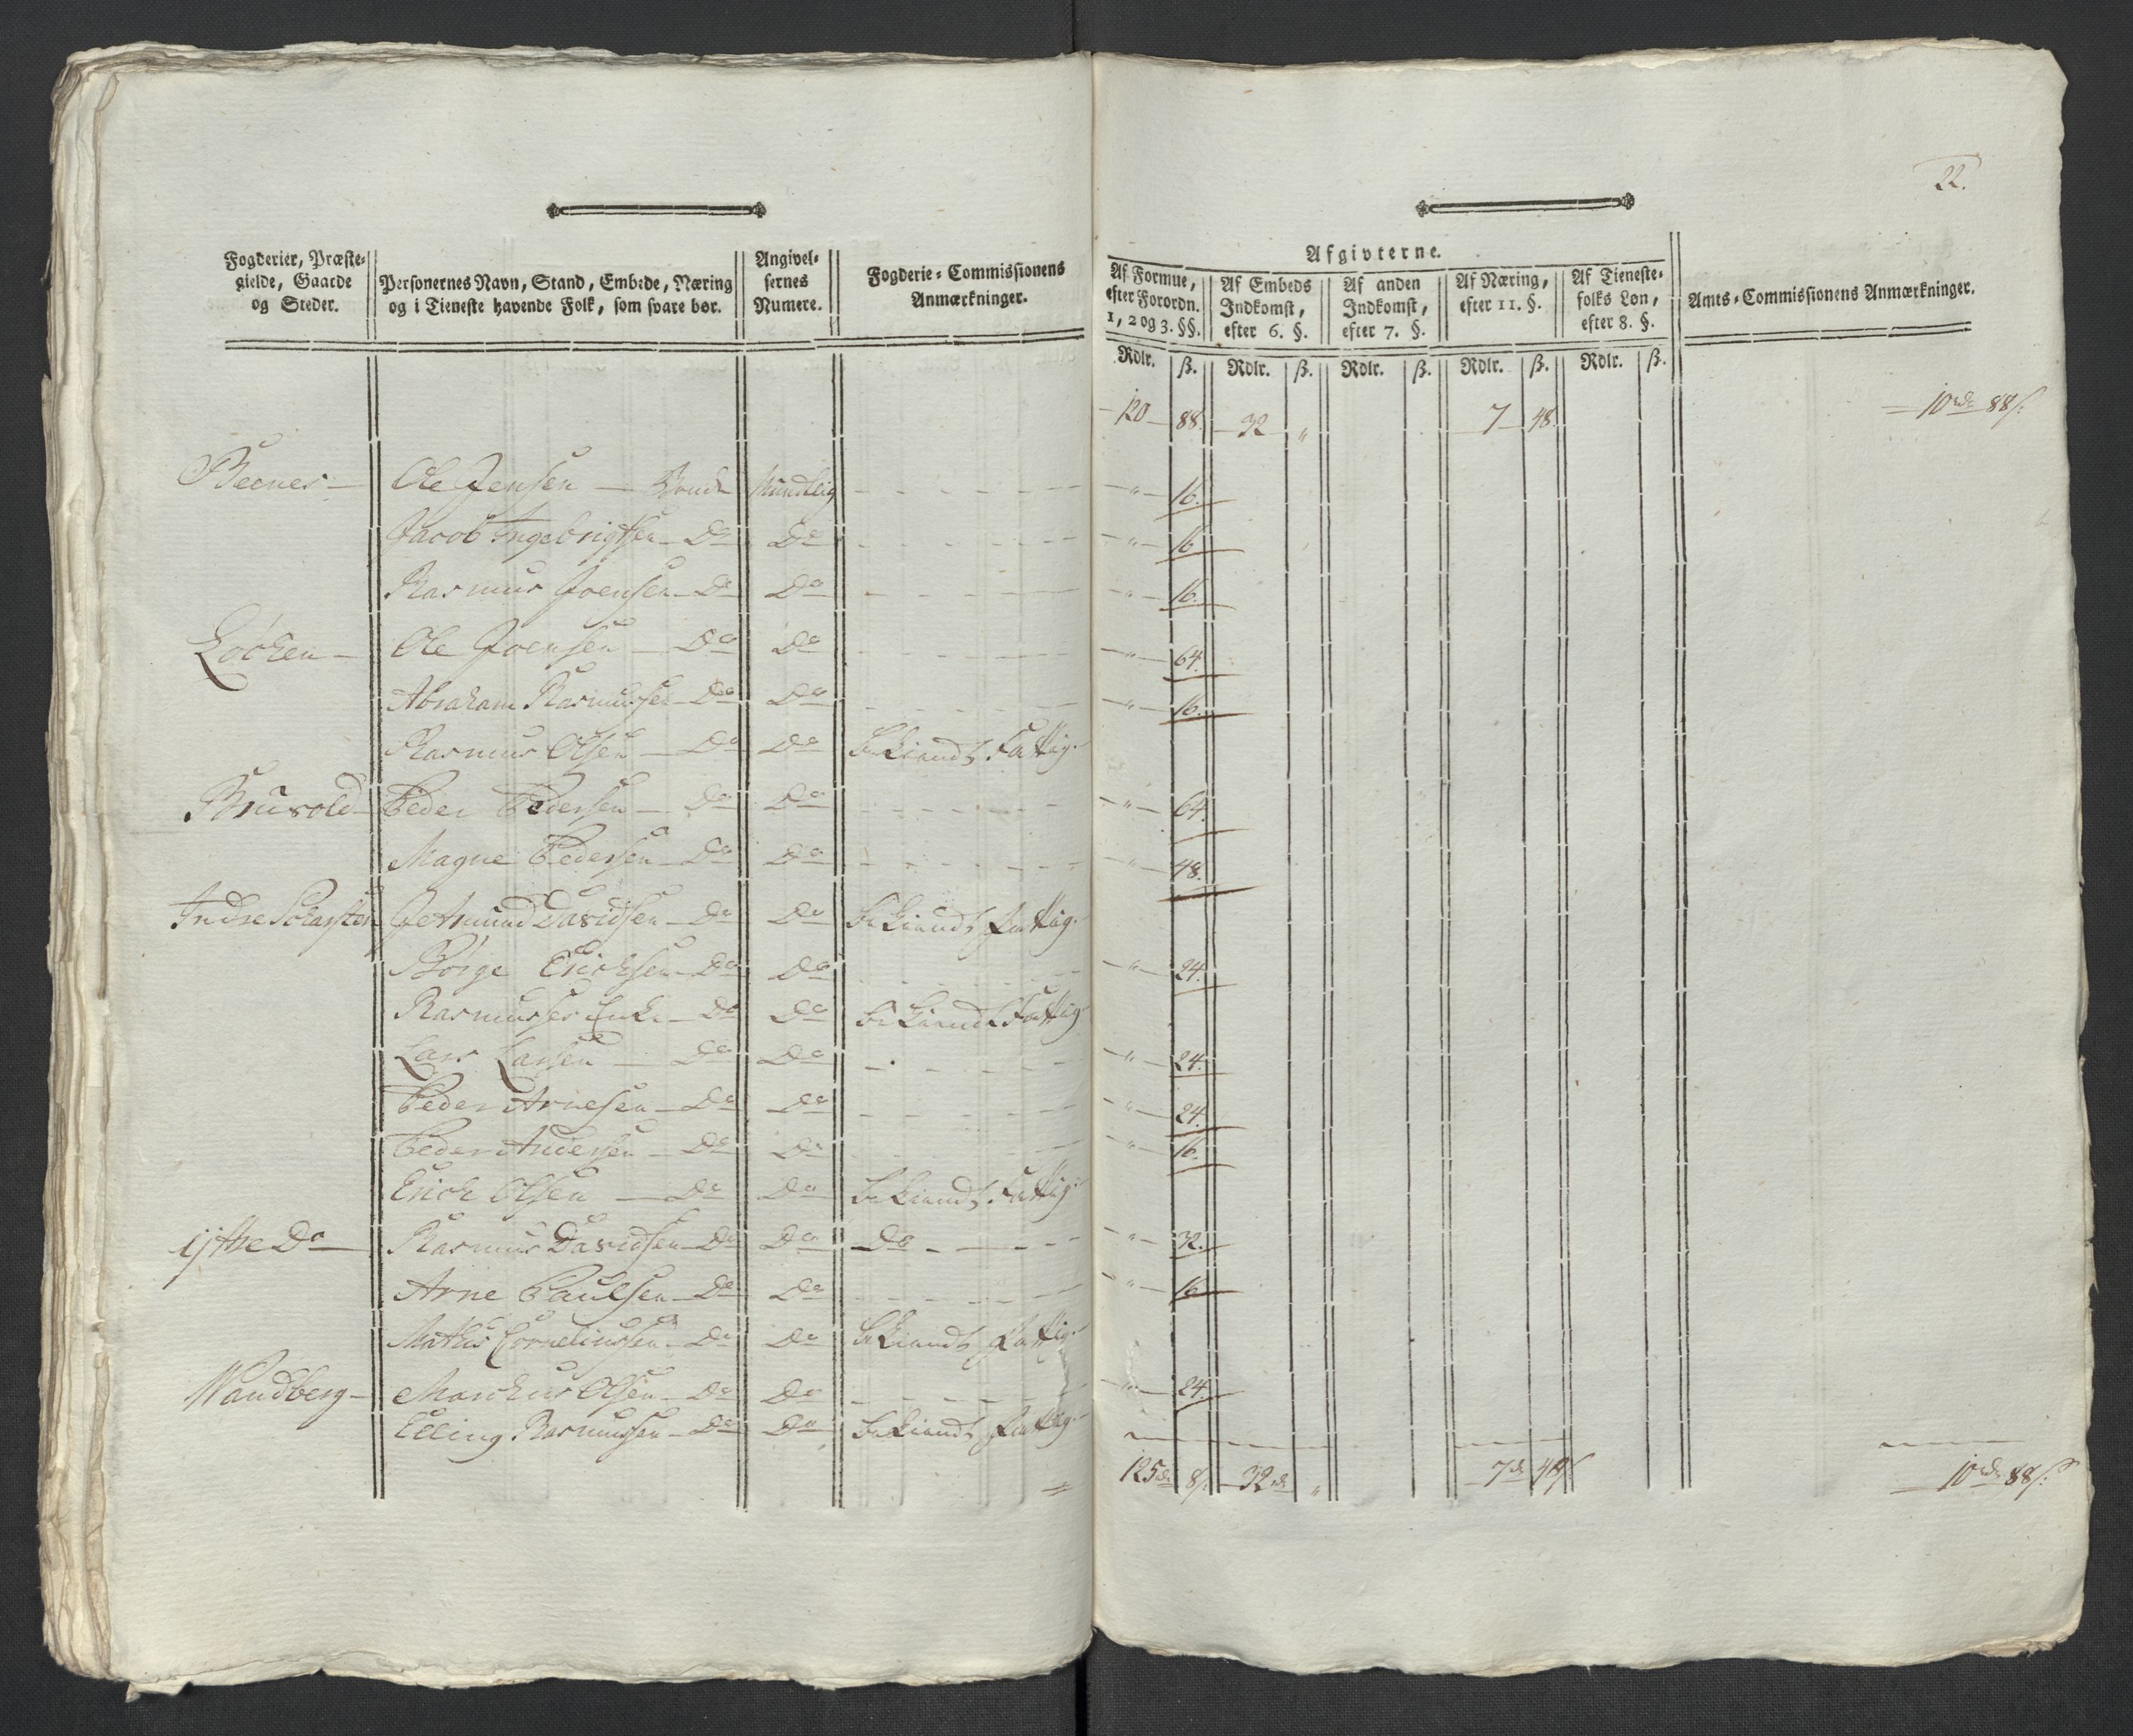 22.
Fogderier, Præste-
gielde, Gaarde
og Steder.
Personernes Navn, Stand, Embede, Næring
og i Tieneste havende Folk, som svare bør.
Angivel-
sernes
Numere.
Fogderie-Commissionens
Anmærkninger.
Afgivterne.
Af Formue,
efter Forordn.
1, 2 og 3. §§.
Af Embeds
Indkomst,
efter 6. §.
Af anden
Indkomst,
efter 7. §.
Af Næring,
efter 11. §.
Af Tieneste-
folks Løn,
efter 8. §.
Amts-Commissionens Anmærkninger.
Rdlr. ß. Rdlr. ß. Rdlr. ß. Rdlr. ß. Rdlr. ß.
120 88. 32 " 7 48. 10 rdr 88 ß.
Ole Jensen — Bonde Mundtlig " 16.
Jacob Ingebrigtsen — Do Do " 16
Rasmus Joensen — Do Do " 16.
Løcken — Ole Joensen — Do Do " 64.
Abraham Rasmussen — Do Do " 16.
Rasmus Olsen — Do Do bekiendt Fattig.
Brusold — Peder Pedersen — Do Do " 64.
Magne Pedersen — Do Do " 48.
Indre Davidsen — Do Do bekiendt Fattig.
Børge Erichsen — Do Do " 24.
Rasmusses Enke — Do Do bekiendt Fattig
Lars Larsen — Do Do " 24.
Peder Arnesen — Do Do " 24.
Peder Andersen — Do Do " 16.
Erich Olsen — Do Do bekiendt Fattig.
ijttre Do — Rasmus Davidsen — Do Do Do " 32.
Arne Paulsen — Do Do " 16
Mathis Corneliussen — Do Do bekiendt Fattig.
Wandberg — Marchus Olsen — Do Do " 24.
Elling Rasmussen — Do Do bekiendt Fattig.
125 rd 8 ß. 32 rd " 7 rd 48 ß 10 rdr 88 ß.